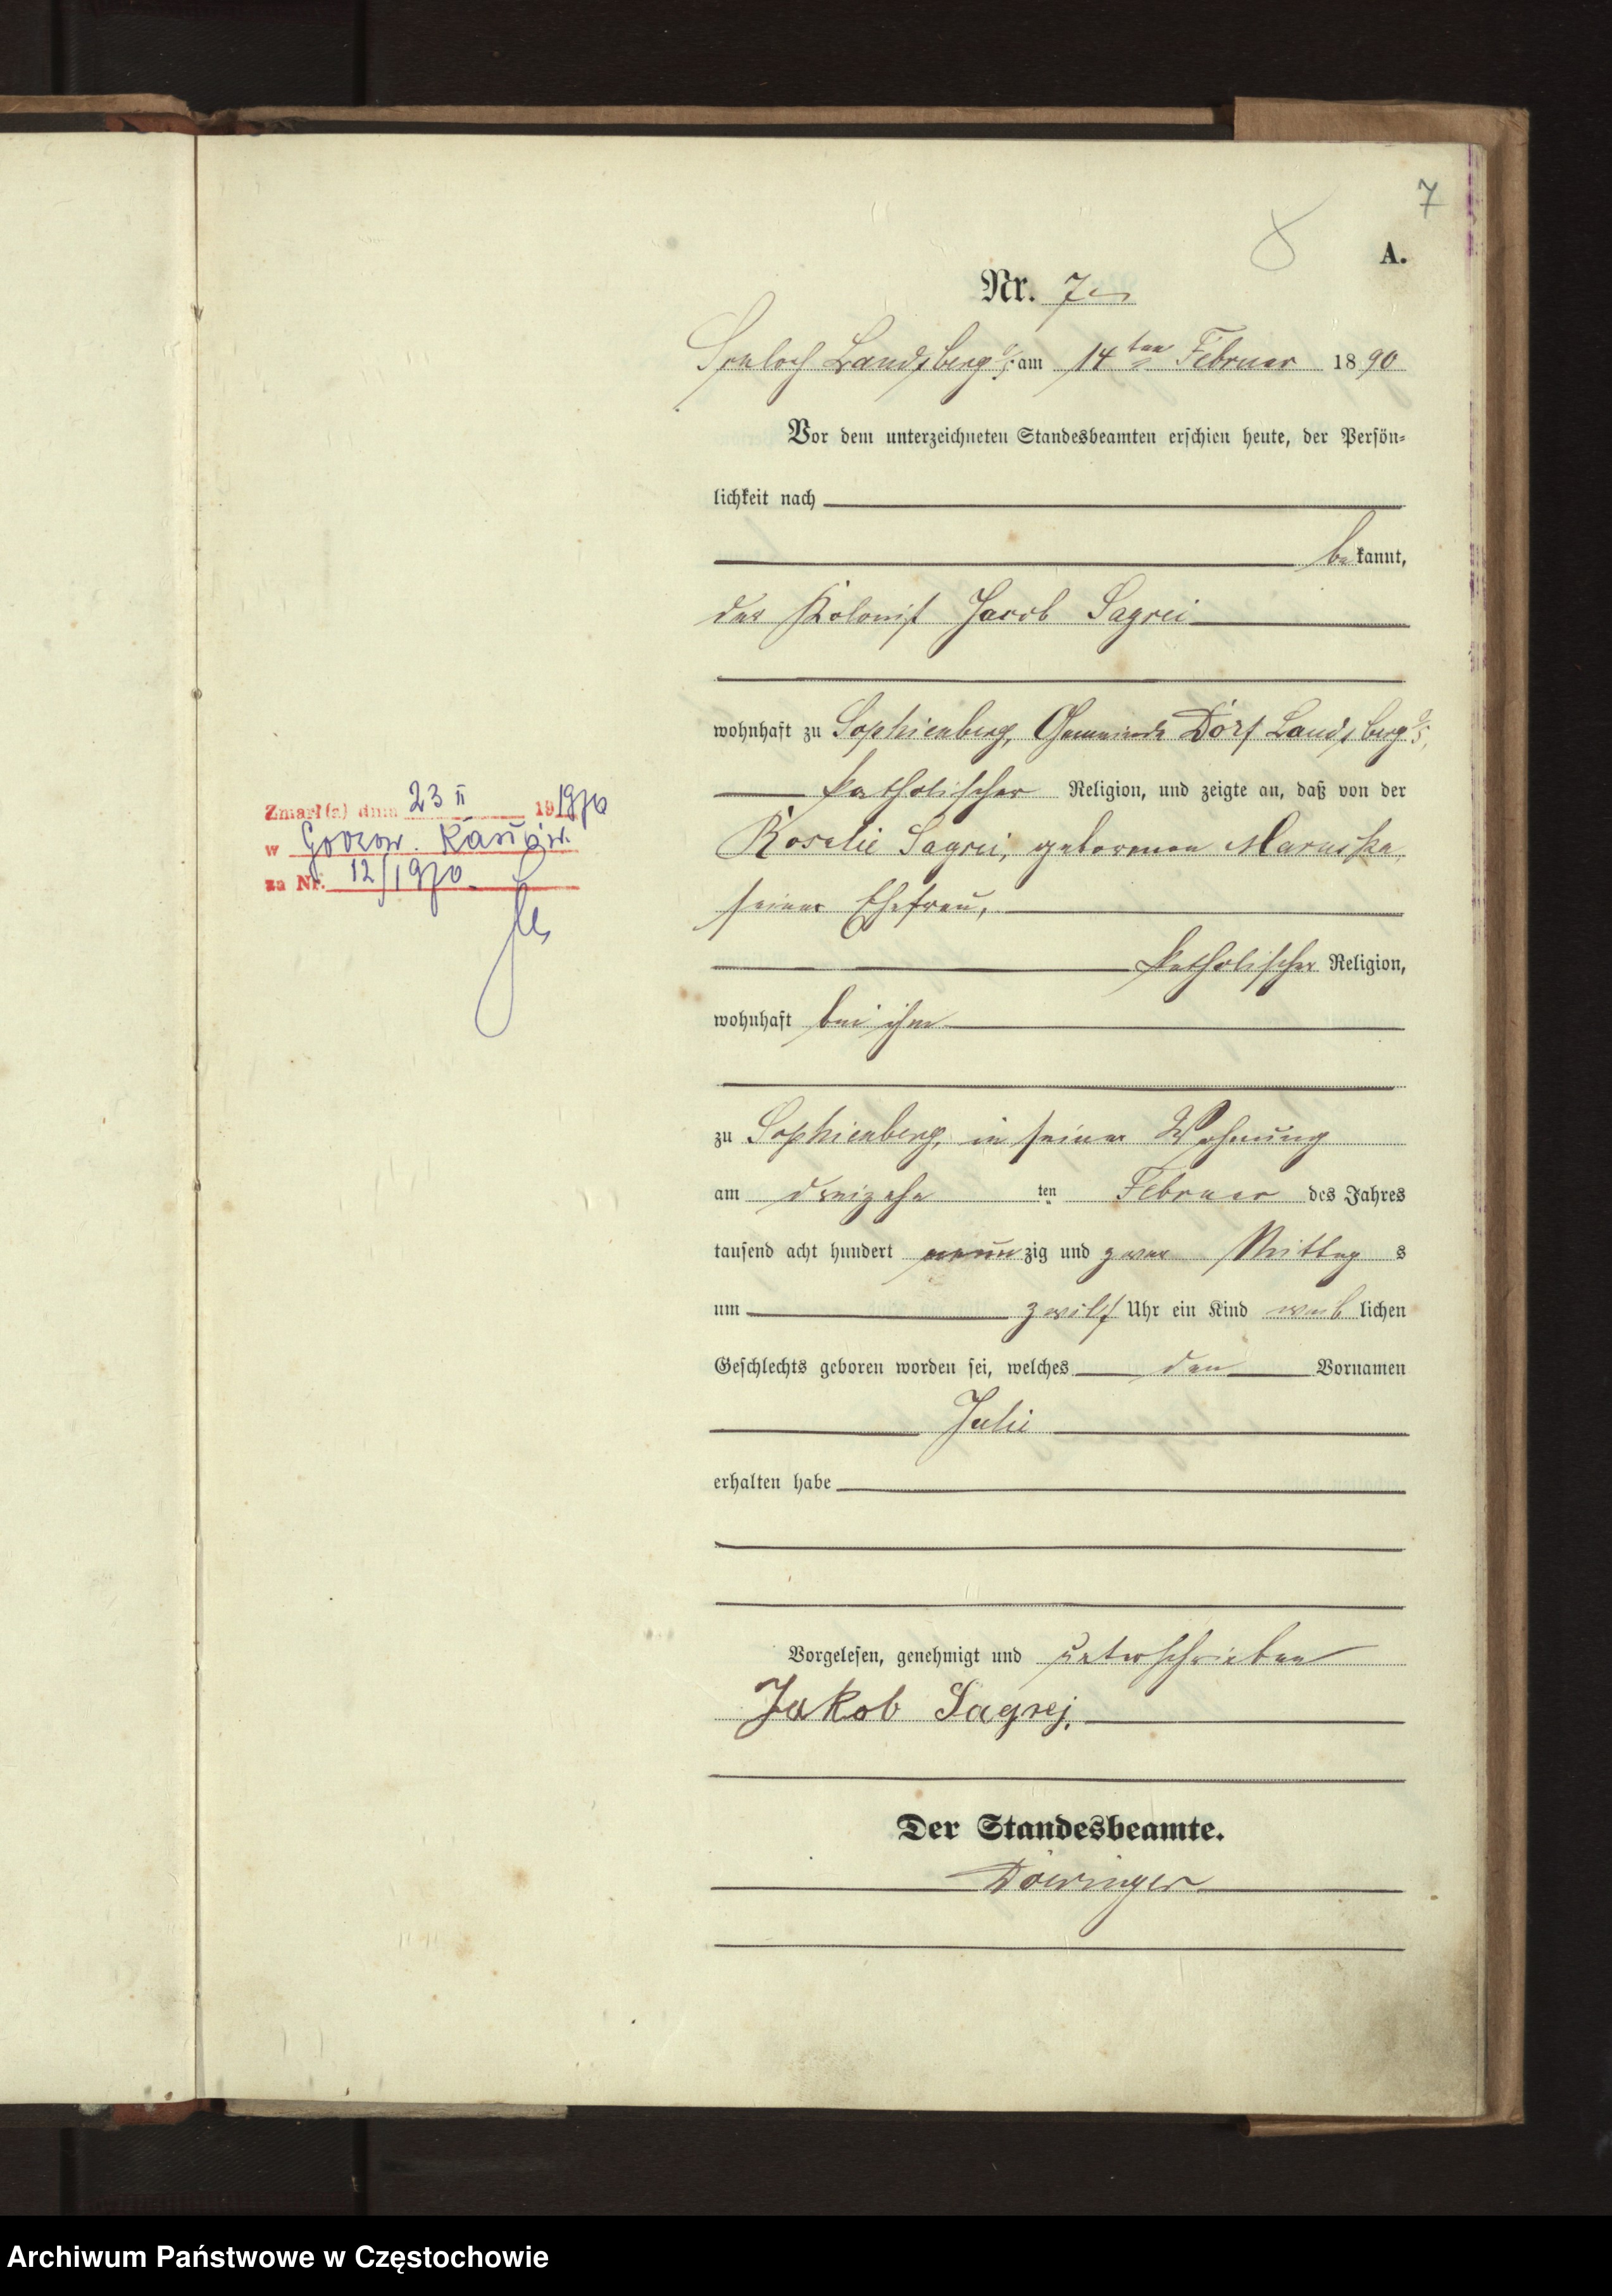 7
A.
Nr. 7
Schloß Landsberg O/S am 14ten Februar 1890
Vor dem unterzeichneten Standesbeamten erschien heute, der Persön-
lichkeit nach
bekannt,
der Kolonist Jacob Sagrei
wohnhaft zu Sophienberg, Gemeinde Dorf Landsberg O/S,
katholischer Religion, und zeigte an, daß von der
Rosalie Sagrei, geborenen Maruska,
seiner Ehefrau,
katholischer Religion,
wohnhaft bei ihm
zu Sophienberg, in seiner Wohnung
am dreizehn ten Februar des Jahres
tausend acht hundert neunzig und zwar Mittag s
um zwölf Uhr ein Kind weiblichen
Geschlechts geboren worden sei, welches den Vornamen
Julie
erhalten habe
Vorgelesen, genehmigt und unterschrieben
Jakob Sagrej.
Der Standesbeamte.
Zmarł(a) dnia 23 II 1970
w Gorzow
za Nr. 12/1970
Archiwum Państwowe w Częstochowie